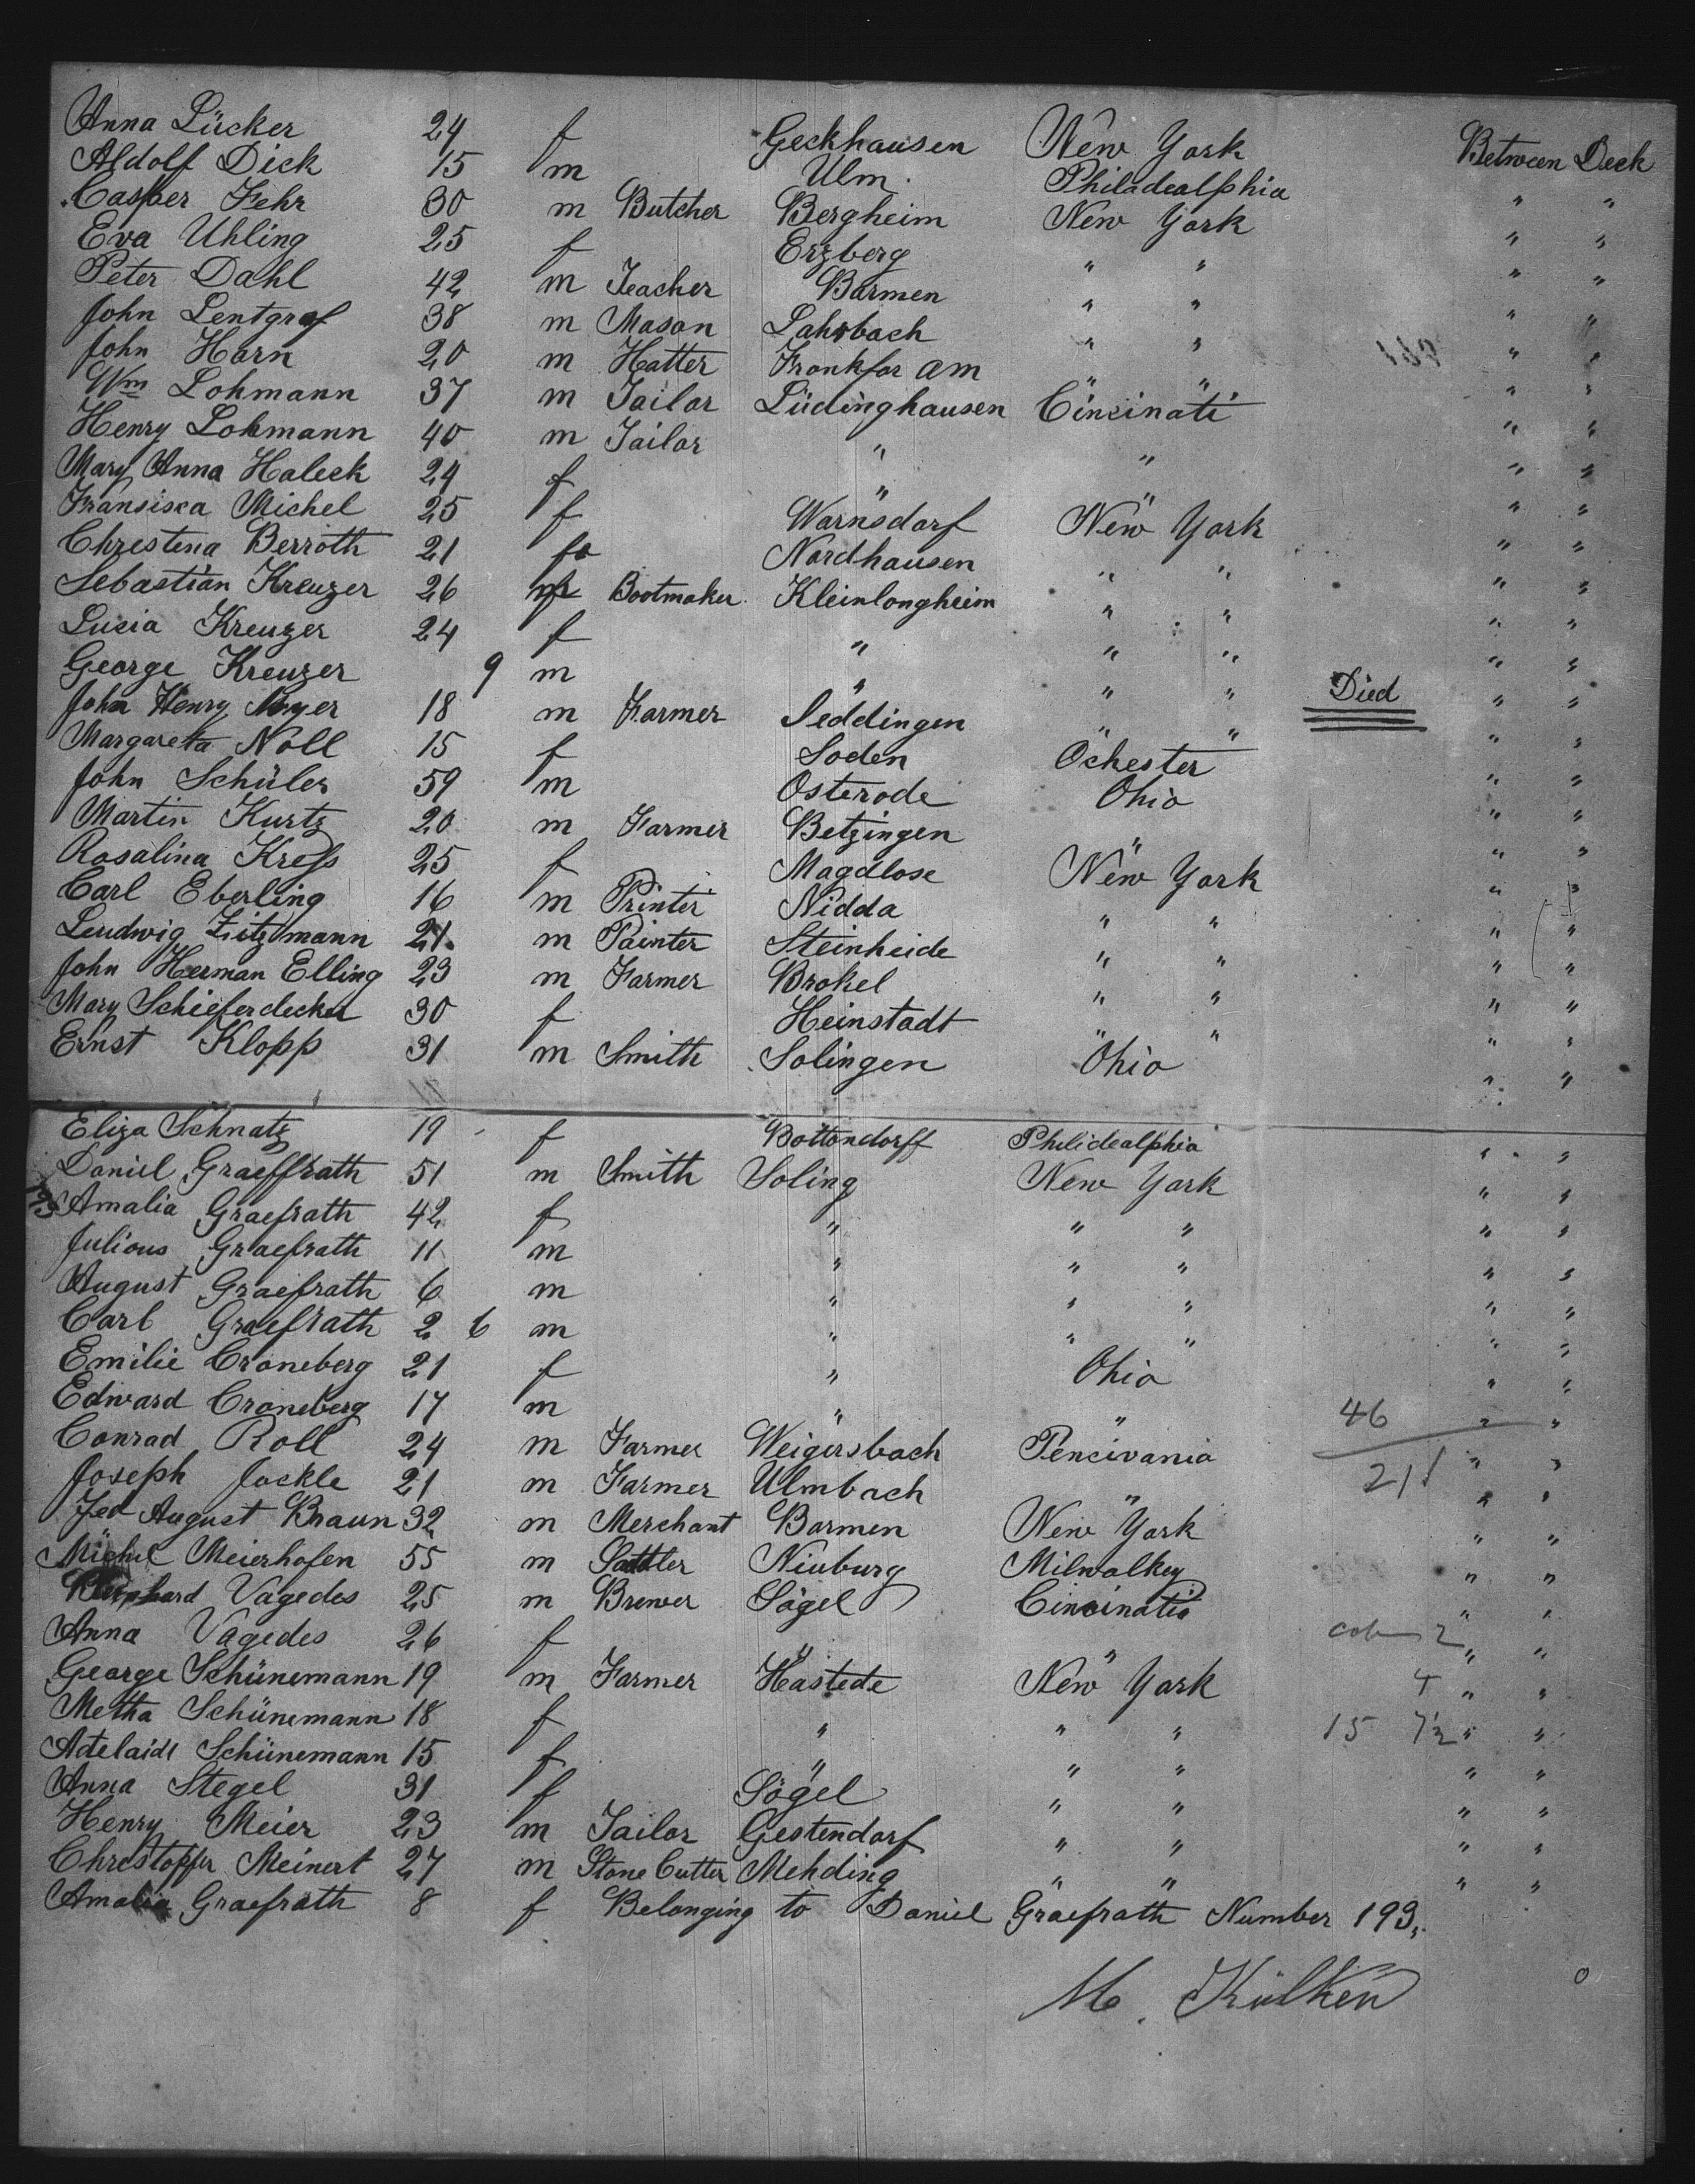 Anna Lücker 24 f Geckhausen New York Between Deck
Aldolf Dick 15 m Ulm. Philadealphia " "
Casper Fehr 30 m Butcher Bergheim New York " "
Eva Uhling 25 f Erzberg " " " "
Peter Dahl 42 m Teacher Barmen " " " "
John Lentgraf 38 m Mason Lahrbach " " " "
John Horn 20 m Hatter Frankfor am " " " "
Wm Lohmann 37 m Tailor Lüdinghausen Cincinati " "
Henry Lohmann 40 m Tailor " " " "
Mary Anna Haleck 24 f " " " "
Fransisca Michel 25 f Warnsdorf New York " "
Chrestena Berroth 21 f Nordhausen " " " "
Sebastian Kreuzer 26 m Bootmaker Kleinlongheim " " " "
Lucia Kreuzer 24 f " " " " "
George Kreuzer 9 m " " " Died " "
John Henry Meyer 18 m Farmer Seddingen " " " "
Margareta Noll 15 f Soden Ochester " "
John Schüler 59 m Osterode Ohio " "
Martin Kurtz 20 m Farmer Betzingen " " "
Rosalina Kress 25 f Magdlose New York " "
Carl Eberling 16 m Printer Nidda " " " "
Leudwig Zitzmann 21 m Painter Steinheide " " " "
John Herman Elling 23 m Farmer Brokel " " " "
Mary Schieferdecker 30 f Heinstadt " " " "
Ernst Klopp 31 m Smith Solingen Ohio " "
Eliza Schnatz 19 f Bottendorff Philidealphia " "
Daniel Graeffrath 51 m Smith Soling New York " "
193 Amalia Graefrath 42 f " " " " "
Julious Graefrath 11 m " " " " "
August Graefrath 6 m " " " " "
Carl Graefrath 2 6 m " " " " "
Emilie Croneberg 21 f " Ohio " "
Edward Croneberg 17 m " " 46 " "
Conrad Roll 24 m Farmer Weigersbach Pencivania " "
Joseph Jockle 21 m Farmer Ulmbach " 211 " "
Fed August Braun 32 m Merchant Barmen New York " "
Michel Meierhofen 55 m Sattler Niuburg Milwalkey " "
Bernhard Vagedes 25 m Brewer Sögel Cincinatio " "
Anna Vagedes 26 f " " 2 " "
George Schünemann 19 m Farmer Hastede New York 4 " "
Metha Schünemann 18 f " " " 15 7½ " "
Adelaide Schünemann 15 f " " " " "
Anna Stegel 31 f Sögel " " " "
Henry Meier 23 m Tailor Gestendorf " " " "
Chrestopfer Meinert 27 m Stone Cutter Mehding " " " "
Amalia Graefrath 8 f Belonging to Daniel Graefrath Number 193.
M. Külken